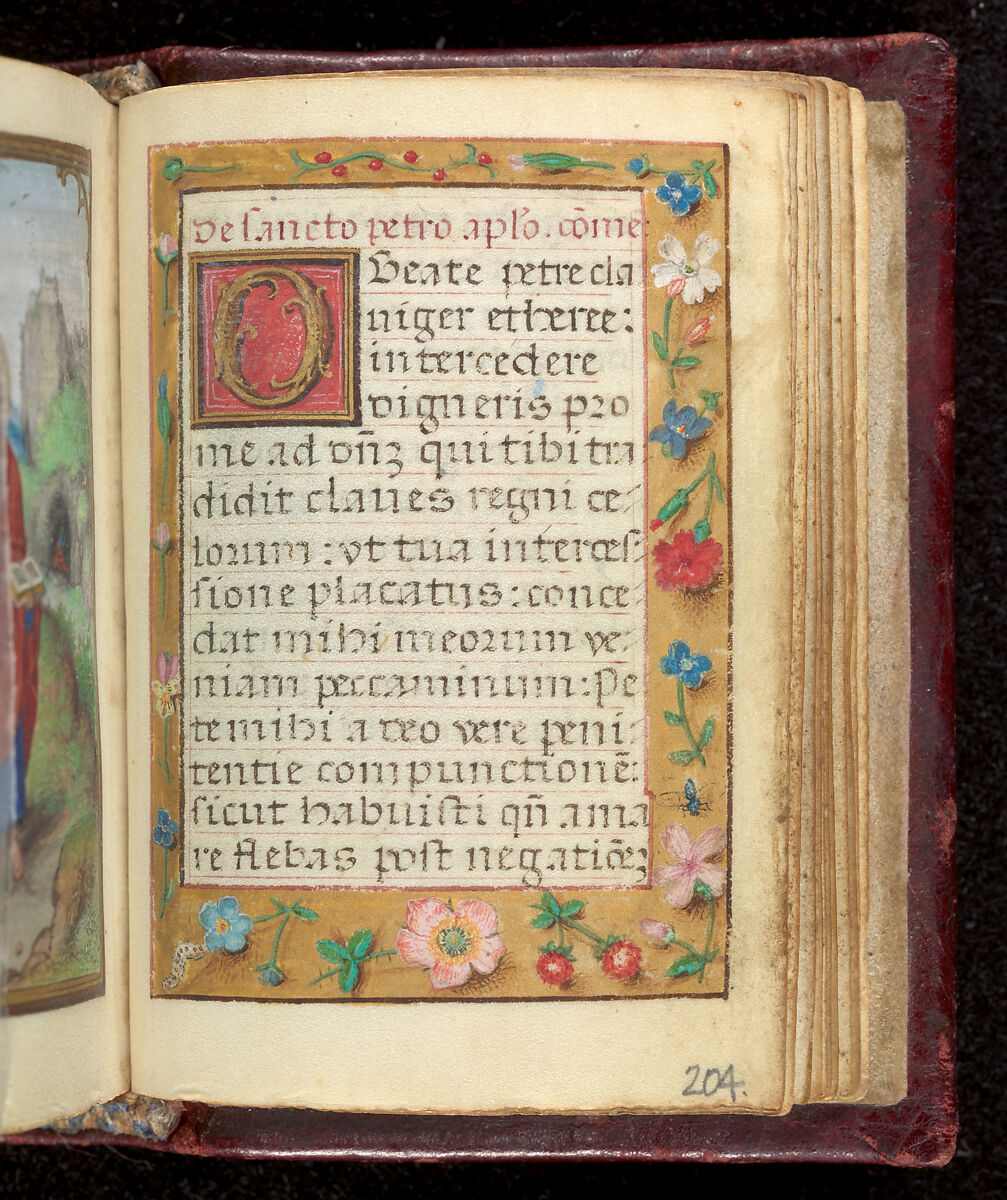 De sancto petro aplo. cōme:
O Beate petre cla
niger etheree:
intercedere
digneris pro
me ad dn̄ꝫ qui tibi tra
didit claues regni ce-
lorum: vt tua interces-
sione placatus: conce-
dat mihi meorum ve-
niam peccaminum: Pe
te mihi a deo vere peni-
tentie compunctionē:
sicut habuisti qn̄ ama
re flebas post negatiōeꝫ
204.